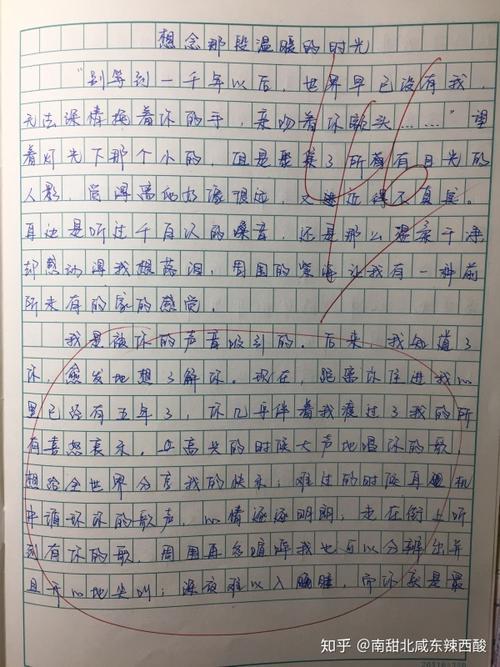 想念那段温暖的时光
“别等到一千年以后,世界早已没有我,
无法深情挽着你的手,亲吻着你额头……”望
着灯光下那个小的,但是聚集了所有目光的
人影,觉得离他好像很远,又近得不真实。
耳边是听过千百次的嗓音,还是那么温柔干净
却感动得我想落泪,周围的荧海让我有一种前
所未有的家的感觉。
我是被你的声音吸引的。后来,我知道了
你,愈发地想了解你。现在,距离你住进我心
里已经有五年了,你几乎伴着我度过了我的所
有喜怒哀乐。在高兴的时候大声地唱你的歌,
想给全世界分享我的快乐;难过的时候耳机
中循环你的歌声,心情逐逐明朗;走在街上听
到有你的歌,周围再怎喧哗我也可以分辨出并
且开心地尖叫;深夜难以入睡,
知乎 @南甜北咸东辣西酸